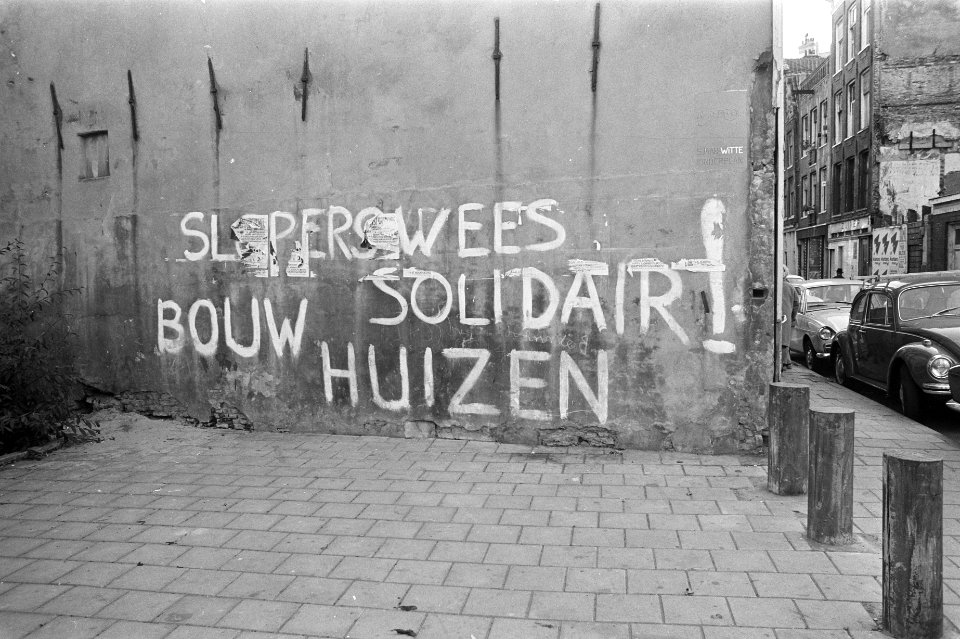 WITTE
SLOPERS WEES
SOLIDAIR!
BOUW
HUIZEN